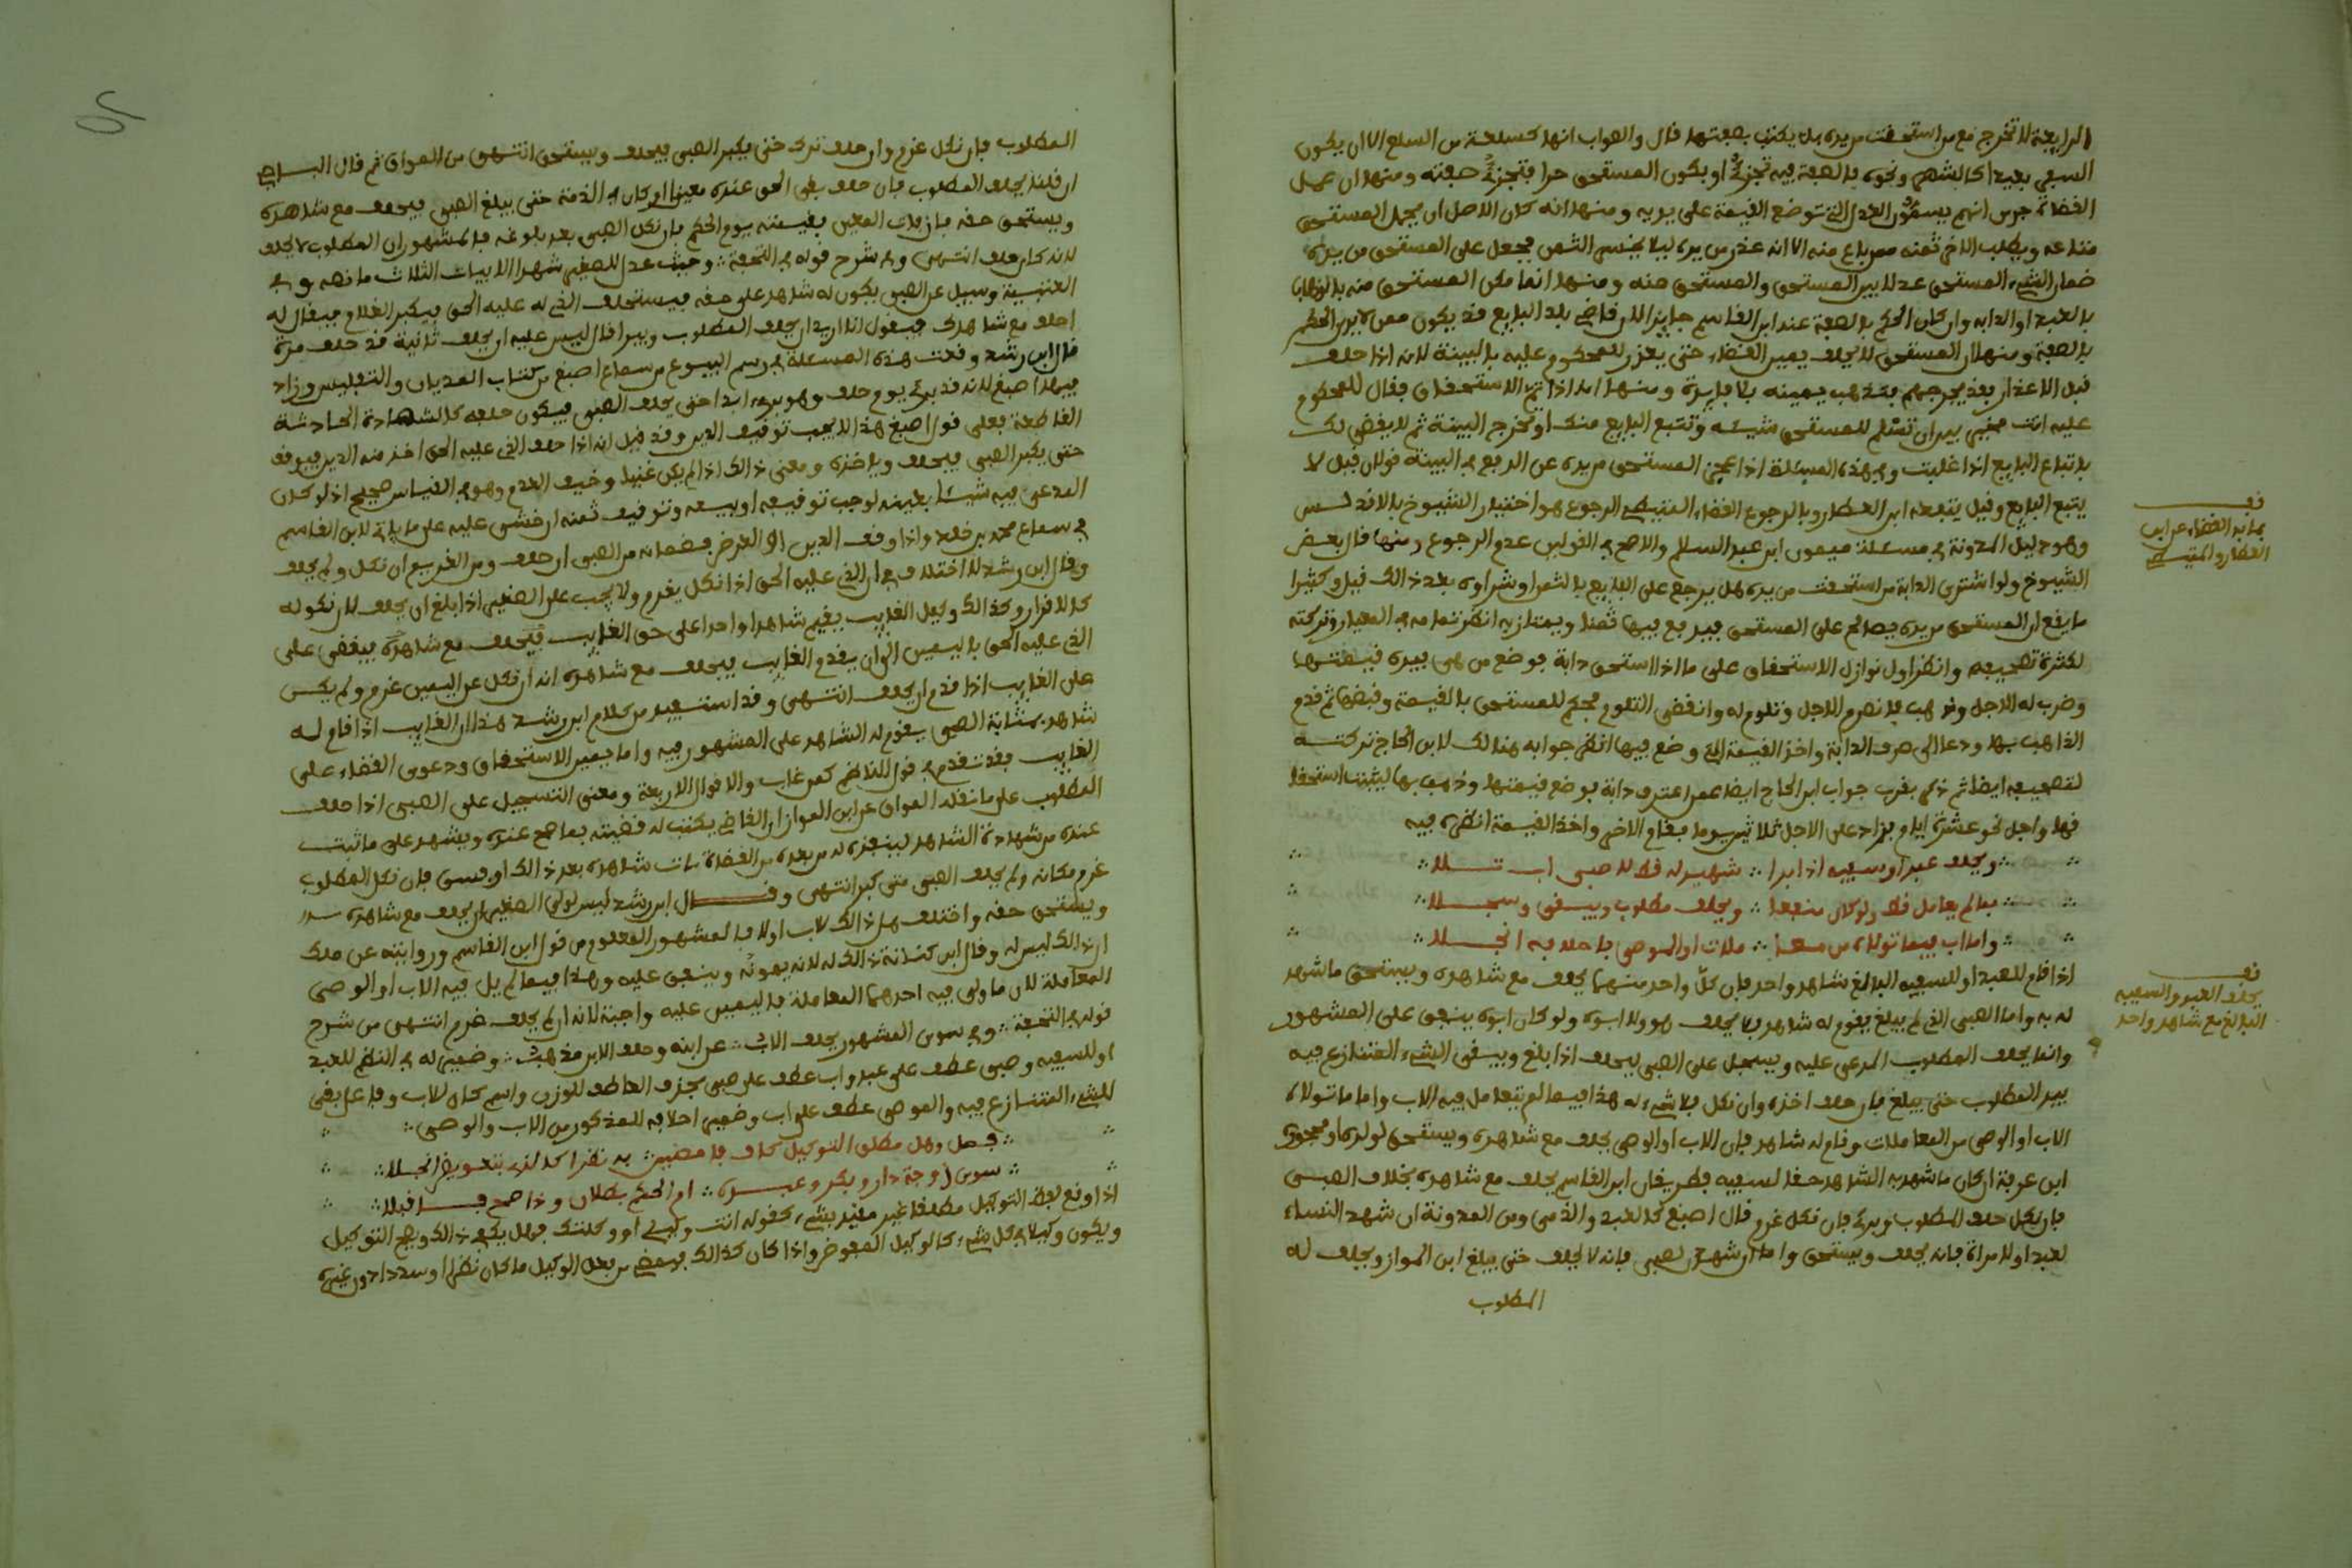 الرابعة لا تخرج مع من استحقت من يده بل يكتب بصفتها قال والصواب انها كسلعة من السلع الا ان يكون
السفر بعيدا كالشهر ونحوه بالصفة فيه تجزئ او يكون المستحق حرا فتجزئ صفته ومنها ان عمل
القضاة جرى انهم يسمون العدل الذي توضع القيمة على يديه ومنها انه كان الاصل ان يحمل المستحق
متاعه ويطلب الاخر ثمنه ممن باع منه الا انه عذر من يده ليلا يخسر الثمن فجعل على المستحق من يده
ضمان الشيء المستحق عدلا بين المستحق والمستحق منه ومنها انما مكن المستحق منه بالذهاب
بالعبد او الدابه وان كان الحكم بالصفة عند ابن القاسم جايزا لان قاضي بلد البايع قد يكون ممن لا يرى الحكم
بالصفة ومنها ان المستحق لا يحلف يمين القضاء حتى يعذر للمحكوم عليه بالبينة لانه اذا حلف
قبل الاعذار بعد يجرحهم فتذهب يمينه بلا فايدة ومنها انه اذا تم الاستحقاق يقال للمحكوم
عليه انت مخير بين ان تسلم للمستحق شيئه وتتبع البايع منك او تخرج البينة ثم لا يقضى لك
باتباع البايع اذا غلبت وفي هذه المسئلة اذا عجز المستحق من يده عن الدفع في البينة قولان قيل لا
يتبع البايع وقيل يتبعه ابن العطار وبالرجوع القضاء المتيطي الرجوع هو اختيار الشيوخ بالاندلس
وهو دليل المدونة في مسئلة ميمون ابن عبد السلام والاصح في القولين عدم الرجوع ومنها قال بعض
الشيوخ ولو اشترى الدابة من استحقت من يده هل يرجع على البايع بالثمن او شراوه بعد ذالك قبل وكثيرا
ما يقع ان المستحق من يده يصالح على المستحق فيدفع فيها ثمنا ويمتاز به انظر تمامه في المعيار وتركته
لكثرة تصحيفه وانظر اول نوازل الاستحقاق على ما اذا استحق دابة فوضع من هي بيده قيمتها
وضرب له الاجل وذهب فانصرم الاجل وتلوم له وانقضى التلوم فحكم للمستحق بالقيمة وقبضها ثم قدم
الذاهب بها ودعا الى صرف الدابة واخذ القيمة التي وضع فيها انظر جوابه هنالك لابن الحاج تركته
لتصحيفه ايضا ثم ذكر بقرب جواب ابن الحاج ايضا عمن اعترف دابة فوضع قيمتها وذهب بها ليثبت استحقا
قها واجل نحو عشرة ايام وزاد على الاجل ثلاثين يوما فقام الاخر واخذ القيمة انظره فيه
ويحلف عبد او سفيه اذا برا ∴ شهيد له فلا لا صبي اب تلا
بمالم يعامل فلا ولو كان منفقا ∴ ويحلف مطلوب ويبقى وسجلا
واما اب فيما تولاه من معا ∴ ملات او الموصى باحلافه انجلا
اذا قام للعبد او للسفيه البالغ شاهد واحد فان كل واحد منهما يحلف مع شاهده ويستحق ما شهد
له به واما الصبي الذي لم يبلغ يقوم له شاهد فلا يحلف هو ولا ابوه ولو كان ابوه ينفق على المشهور
وانما يحلف المطلوب المدعى عليه ويسجل على الصبي ليحلف اذا بلغ ويبقى الشيء المتنازع فيه
بيد المطلوب حتى يبلغ فان حلف اخذه وان نكل فلا شيء له هذا فيما لم يتعامل فيه الاب واما ما تولاه
الاب او الوصي من المعاملات وقام له شاهد فان الاب او الوصي يحلف مع شاهده ويستحق لولده او محجوره
ابن عرفة ان كان ما شهد به الشاهد حقا لسفيه فطريقان ابن القاسم يحلف مع شاهده بخلاف الصبي
فان نكل حلف المطلوب وبرئ فان نكل غرم قال اصبغ كالعبد والذمي ومن المدونة ان شهد النساء
لعبد او لامراة فانه يحلف ويستحق واما ان شهدن لصبي فانه لا يحلف حتى يبلغ ابن المواز ويحلف له
المطلوب
قف
بما به القضاء عن ابن
العطار والمتيطي
قف
يحلف العبد والسفيه
البالغ مع شاهد واحد
المطلوب فان نكل غرم وان حلف ترك حتى يكبر الصبي فيحلف ويستحق انتهى من المواق ثم قال الباجي
ان قلنا يحلف المطلوب فان حلف بقي الحق عنده معينا او كان في الذمة حتى يبلغ الصبي فيحلف مع شاهده
ويستحق حقه فان فات المعين فقيمته يوم الحكم فان نكل الصبي بعد بلوغه فالمشهور ان المطلوب لا يحلف
لانه كان حلف انتهى وفي شرح قوله في التحفة ∴ وحيث عدل للصغير شهدا الابيات الثلاث ما نصه وفي
العتبية وسيل عن الصبي يكون له شاهد على حقه فيستحلف الذي له عليه الحق فيكبر الغلام فيقال له
احلف مع شاهدك فيقول انا اريد ان يحلف المطلوب ويبرا قال ليس عليه ان يحلف ثانية قد حلف مرة
قال ابن رشد وقعت هذه المسئلة في رسم البيوع من سماع اصبغ من كتاب المديان والتفليس وزاد
فيها اصبغ لانه قد برئ يوم حلف وهو برئ ابدا حتى يحلف الصبي فيكون حلفه كالشهادة الحادثة
القاطعة فعلى قول اصبغ هذا لا يجب توقيف الدين وقد قيل انه اذا حلف الذي عليه الحق اخذ منه الدين فيوقف
حتى يكبر الصبي فيحلف وياخذه ومعنى ذالك اذا لم يكن غنيا وخيف العدم وهو في القياس صحيح اذ لو كان
المدعى فيه شيئا بعينه لوجب توقيفه او بيعه وتوقيف ثمنه ان خشي عليه على ما ياتي لابن القاسم
في سماع محمد بن خالد واذا وقف الدين او العرض فضمانه من الصبي ان حلف ومن الغريم ان نكل ولم يحلف
وقال ابن رشد لا اختلاف في ان الذي عليه الحق اذا نكل يغرم ولا يجب على الصغير اذا بلغ ان يحلف لان نكوله
كالاقرار وكذالك وكيل الغايب يقيم شاهدا واحدا على حق الغايب فيحلف مع شاهده فيقضى على
الذي عليه الحق باليمين الى ان يقدم الغايب فيحلف مع شاهده انه ان نكل عن اليمين غرم ولم يكن
على الغايب اذا قدم ان يحلف انتهى وقد استفيد من كلام ابن رشد هذا ان الغايب اذا قام له
شاهد بمثابة الصبي يقوم له الشاهد على المشهور فيه واما يمين الاستحقاق ودعوى القضاء على
الغايب فقد تقدم في قول الناظم كمن غاب والاقوال الاربعة ومعنى التسجيل على الصبي اذا حلف
المطلوب على ما نقله المواق عن ابن المواز ان القاضي يكتب له قضيته بما صح عنده ويشهد على ما ثبت
عنده من شهادة الشاهد لينفذه له من بعده من القضاة مات شاهده بعد ذالك او فسق فان نكل المطلوب
غرم مكانه ولم يحلف الصبي متى كبر انتهى وقال ابن رشد ليس لولي الصغير ان يحلف مع شاهده
ويستحق حقه واختلف هل ذالك لاب اولا فالمشهور المعلوم من قول ابن القاسم وروايته عن ملك
ان ذالك ليس له وقال ابن كنانة ذالك له لانه يمونه وينفق عليه وهذا فيما لم يل فيه الاب او الوصي
المعاملة لان ما ولي فيه احدهما المعاملة فاليمين عليه واجبة لانه ان لم يحلف غرم انتهى من شرح
قوله في التحفة ∴ وفي سوى المشهور يحلف الاب ∴ عن ابنه وحلف الابن مذهب ∴ وضمير له في النظم للعبد
او للسفيه وصبي عطف على عبد واب عطف على صبي بحذف العاطف للوزن واسم كان للاب وفاعل يبقى
للشيء المتنازع فيه والموصى عطف على اب وضمير احلافه للمذكور من الاب والوصي ∴
فصل وهل مطلق التوكيل كاف فا مضين ∴ به نظرا كالذ بتفويض انجلا
سوى زوجة دار وبكر وعبده ∴ ام الحكم بطلان وذا صح فاقبلا
اذا وقع لفظ التوكيل مطلقا غير مقيد بشيء كقوله انت وكيلي او وكلتك فهل يكفي ذالك ويصح التوكيل
ويكون وكيلا في كل شيء كالوكيل المفوض واذا كان كذالك فيمضي من فعل الوكيل ما كان نظرا وسدادا دون غيره